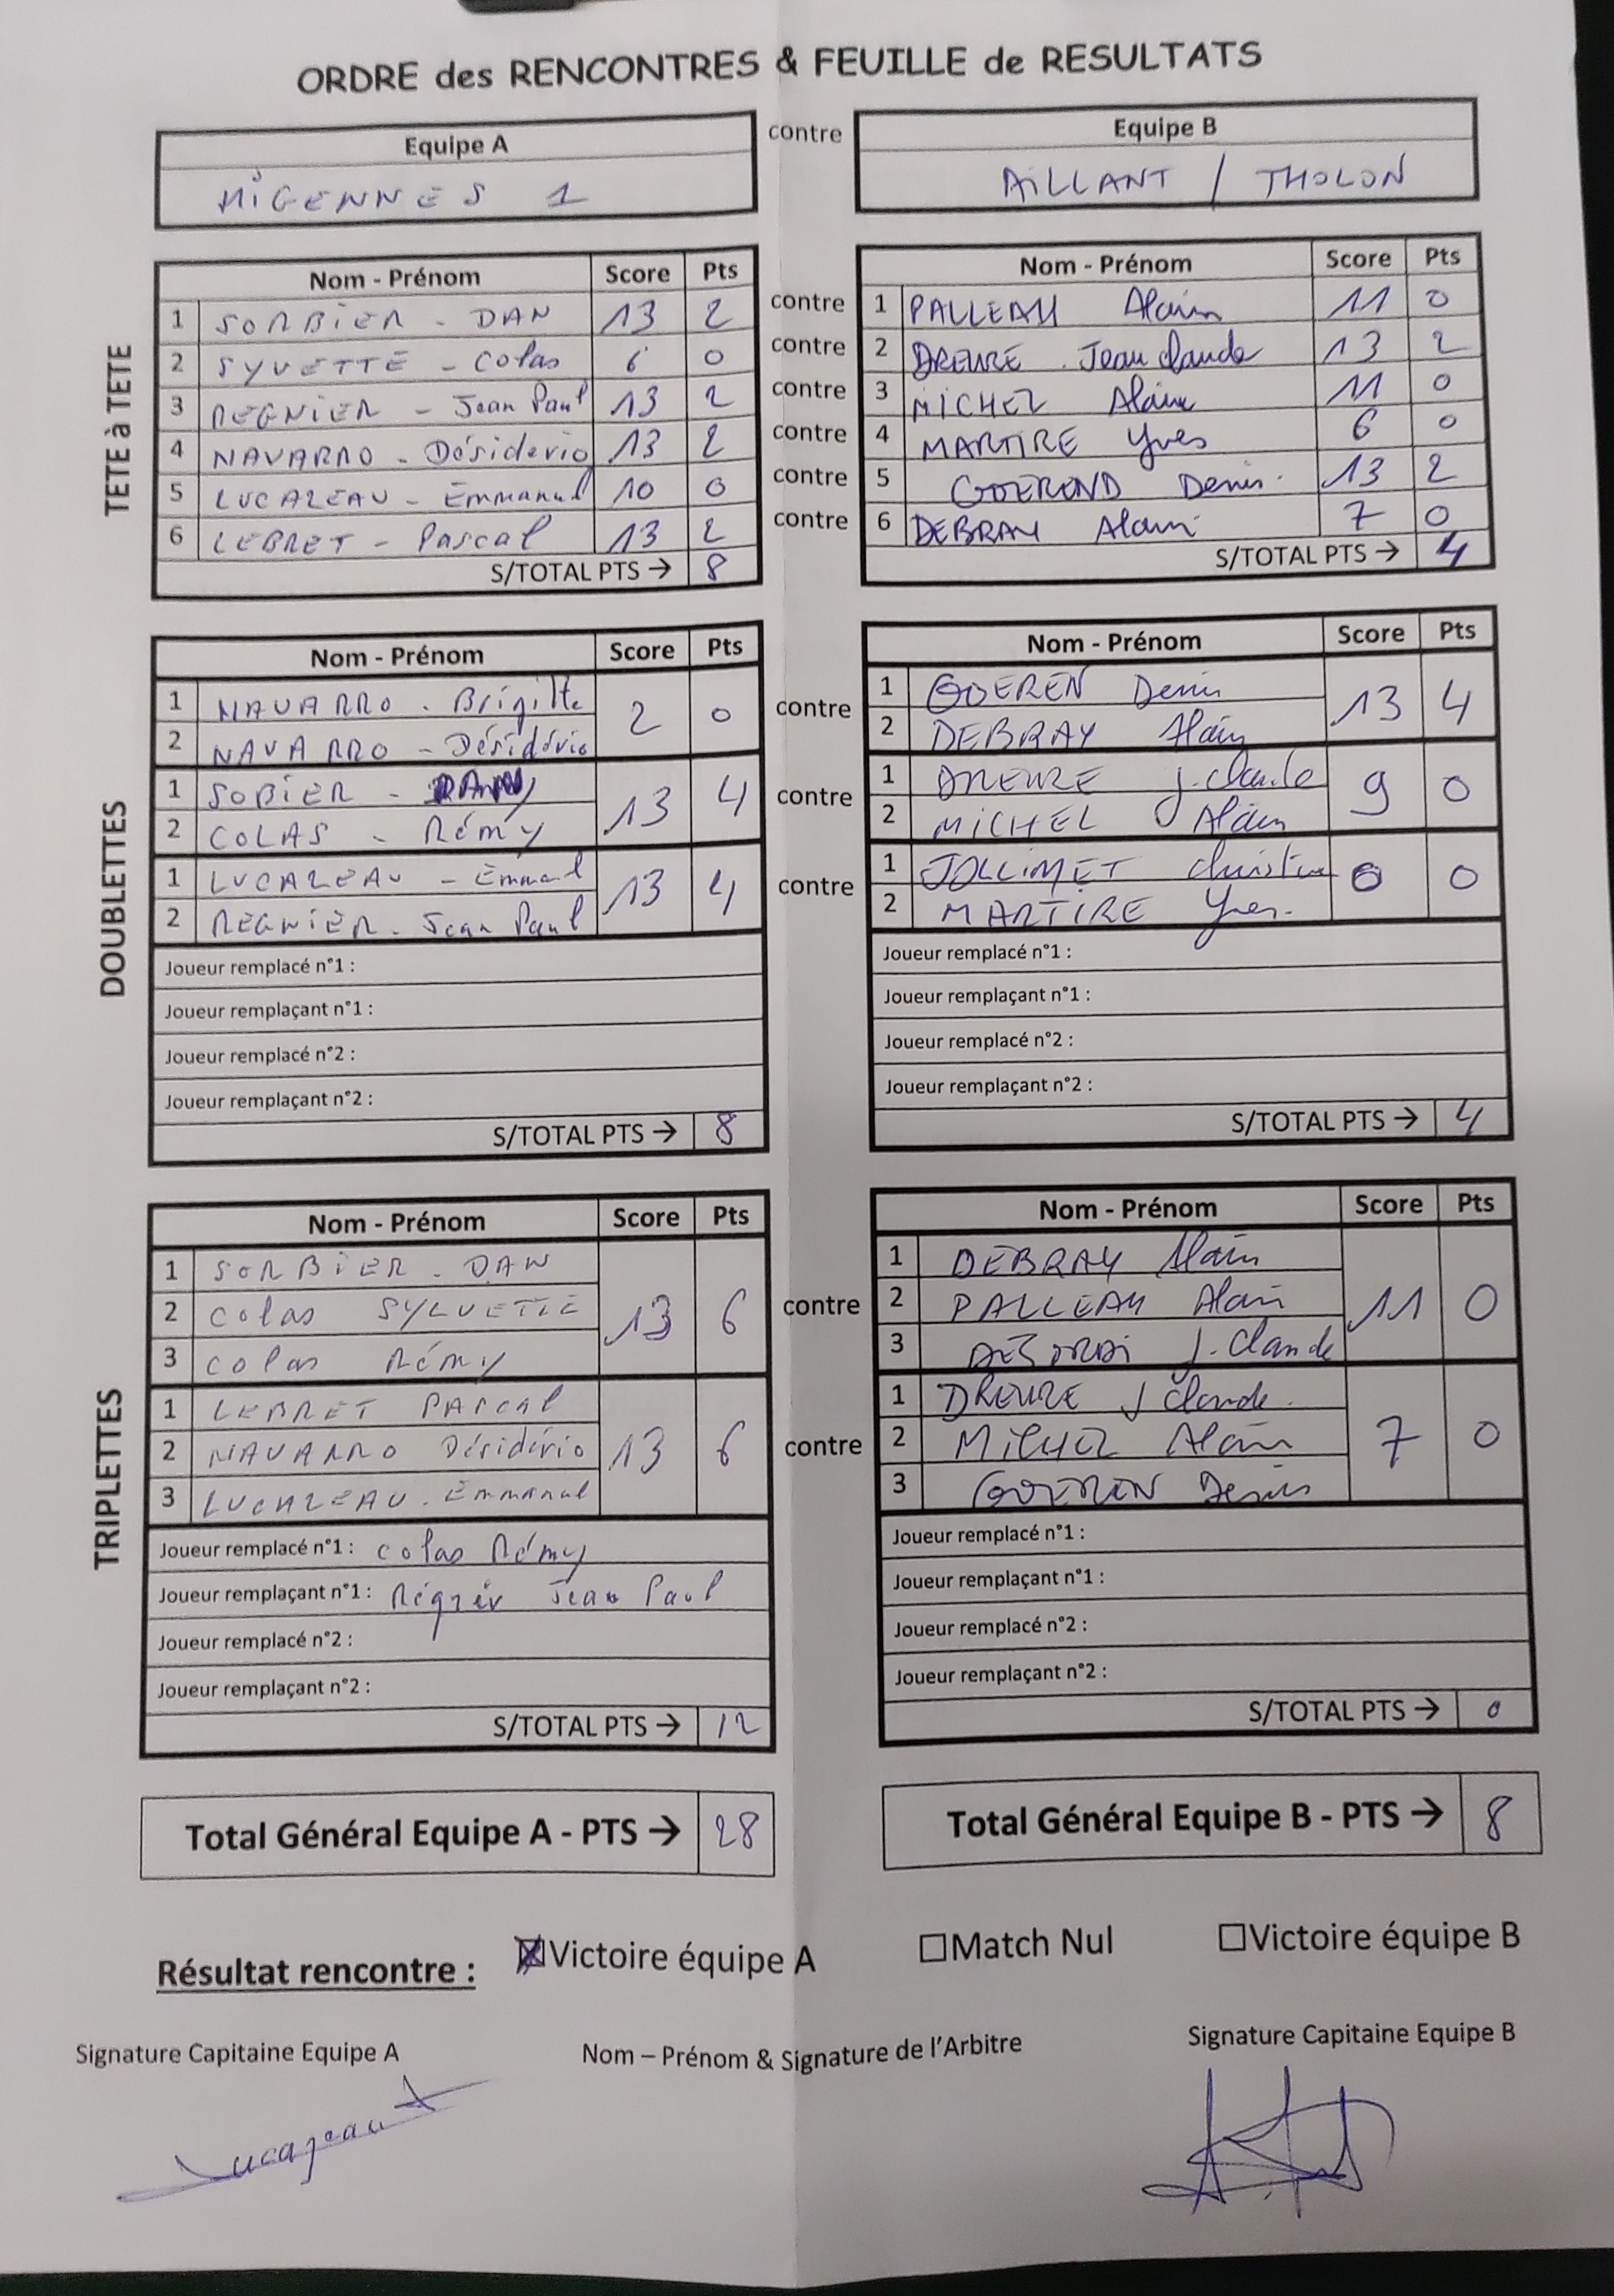 ORDRE des RENCONTRES & FEUILLE de RESULTATS
Equipe A contre Equipe B
MIGENNES 1 AILLANT / THOLON
TETE à TETE
Nom - Prénom Score Pts Nom - Prénom Score Pts
1 SORBIER - DAN 13 2 contre 1 PALLEAU Alain 11 0
2 SYVETTE - Colas 6 0 contre 2 DREURE Jean claude 13 2
3 REGNIER - Jean Paul 13 2 contre 3 MICHEL Alain 11 0
4 NAVARRO - Désiderio 13 2 contre 4 MARTIRE Yves 6 0
5 LUCAZEAU - Emmanuel 10 0 contre 5 GOEREND Denis 13 2
6 LEBRET - Pascal 13 2 contre 6 DEBRAY Alain 7 0
S/TOTAL PTS → 8 S/TOTAL PTS → 4
DOUBLETTES
Nom - Prénom Score Pts Nom - Prénom Score Pts
1 NAVARRO - Brigitte 2 0 contre 1 GOEREN Denis 13 4
2 NAVARRO - Désidério 2 DEBRAY Alain
1 SOBIER - DANY 13 4 contre 1 DREURE J. claude 9 0
2 COLAS - Rémy 2 MICHEL Alain
1 LUCAZEAU - Emmanl 13 4 contre 1 JOLLIMET christian 6 0
2 REGNIER - Jean Paul 2 MARTIRE Yves.
Joueur remplacé n°1 : Joueur remplacé n°1 :
Joueur remplaçant n°1 : Joueur remplaçant n°1 :
Joueur remplacé n°2 : Joueur remplacé n°2 :
Joueur remplaçant n°2 : Joueur remplaçant n°2 :
S/TOTAL PTS → 8 S/TOTAL PTS → 4
TRIPLETTES
Nom - Prénom Score Pts Nom - Prénom Score Pts
1 SORBIER - DAN 13 6 contre 1 DEBRAY Alain 11 0
2 Colas SYLVETTE 2 PALLEAU Alain
3 Colas Rémy 3 J. Claude
1 LEBRET PASCAL 13 6 contre 1 DREURE J Claude. 7 0
2 NAVARRO Désidério 2 MICHEL Alain
3 LUCAZEAU - Emmanuel 3 GOEREN Denis
Joueur remplacé n°1 : Colas Rémy Joueur remplacé n°1 :
Joueur remplaçant n°1 : Régnier Jean Paul Joueur remplaçant n°1 :
Joueur remplacé n°2 : Joueur remplacé n°2 :
Joueur remplaçant n°2 : Joueur remplaçant n°2 :
S/TOTAL PTS → 12 S/TOTAL PTS → 0
Total Général Equipe A - PTS → 28 Total Général Equipe B - PTS → 8
Résultat rencontre : ☒Victoire équipe A ☐Match Nul ☐Victoire équipe B
Signature Capitaine Equipe A Nom – Prénom & Signature de l'Arbitre Signature Capitaine Equipe B
Lucazeau